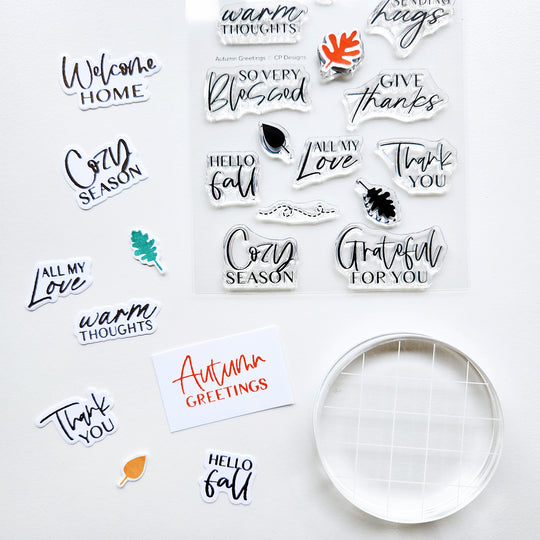 warm
THOUGHTS
SENDING
hugs
Autumn Greetings ♡ CP Designs
SO VERY
Blessed
GIVE
thanks
HELLO
fall
ALL MY
Love
Thank
YOU
Cozy
SEASON
Grateful
FOR YOU
Welcome
HOME
Cozy
SEASON
ALL MY
Love
warm
THOUGHTS
Thank
YOU
Autumn
GREETINGS
HELLO
fall